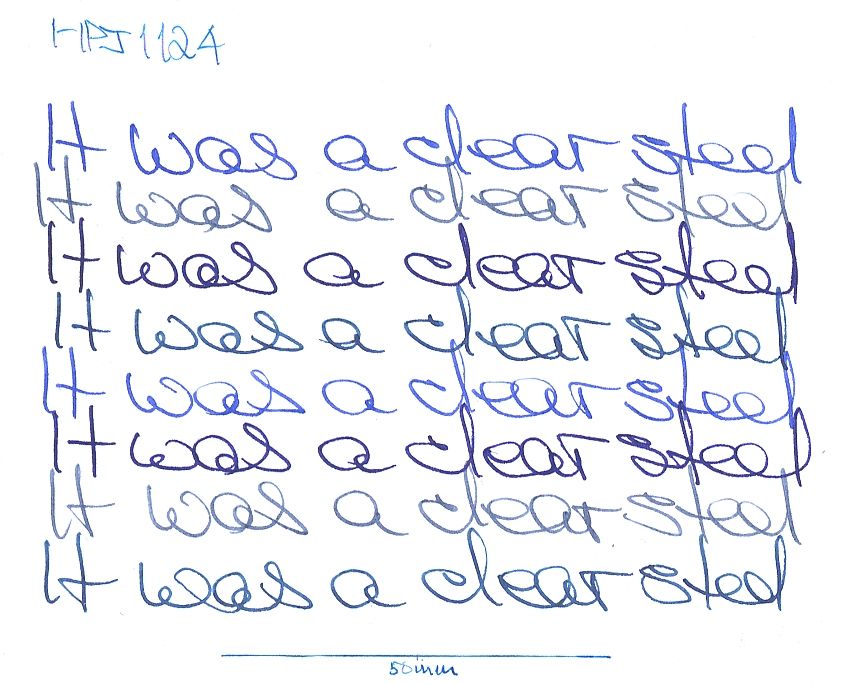 HPJ1124
It was a clear steel
It was a clear steel
It was a clear steel
It was a clear steel
It was a clear steel
It was a clear steel
It was a clear steel
It was a clear steel
50mm